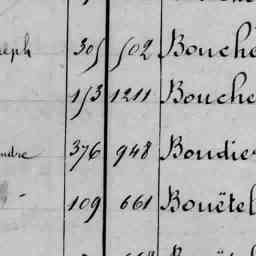 305 502 Bouché
153 1211 Bouche
376 948 Boudier
109 661 Bouëtel